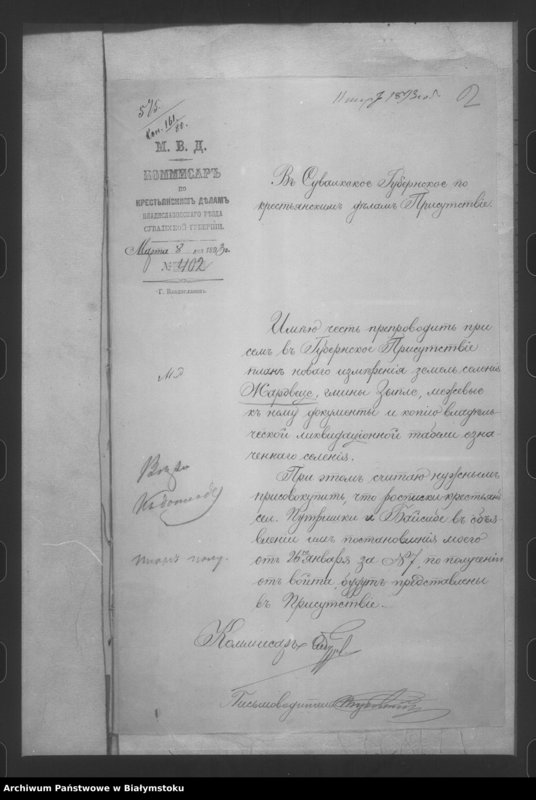 575
161
88.
11 1893 г.
2
М. В. Д.
КОММИСАРЪ
по
КРЕСТЬЯНСКИМЪ ДѢЛАМЪ
ВЛАДИСЛАВОВСКАГО УѢЗДА
СУВАЛКСКОЙ ГУБЕРНІИ.
Марта 8 дня 1893 г.
№ 402
Г. Владиславовъ.
Въ Сувалкское Губернское по
крестьянскимъ дѣламъ Присутствіе.
Имѣю честь препроводить при
семъ въ Губернское Присутствіе
планъ новаго измѣренія земель селенія
гмины Зыпле, межовые
къ нему документы и копію владѣль-
ческой ликвидаціонной табели озна-
ченнаго селенія.
При этомъ считаю нужнымъ
присовокупить, что росписки крестьянъ
сел. Путришки и въ объя-
вленіи имъ постановленія моего
отъ 26го Января за № 7, по полученіи
отъ войта, будутъ представлены
въ Присутствіе.
Коммисаръ
Письмоводитель
Archiwum Państwowe w Białymstoku